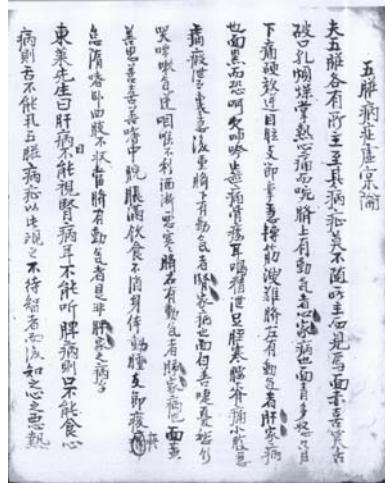 五臟病症虛實論
夫五臟各有所主至其病症莫不隨所主而見焉面赤喜笑舌
破口乾煩燥掌熱心痛而啘臍上有動氣者心家病也面青多怒脅
下痛硬數近目肢支節攣急轉筋溲難臍左有動氣者肝家病
也面黑而恐呵欠呻吟齒痛骨痿耳鳴精泄足脛寒腰脊痛小腹急
痛瘕泄而裏急後重臍下有動氣者腎家病也面白善嚏憂愁欲
哭哮嗽氣逆咽喉不利洒淅惡寒臍右有動氣者肺家病也面黃
善思善嗜中脘脹滿飲食不消身体動腫支節痠疼
怠惰嗜卧四肢不收當臍有動氣者是非脾家之病乎
東萊先生曰肝病目不能視腎病耳不能听脾病則口不能食心
病則舌不能 五臟病症以此視之不待智者而後知之心之惡熱